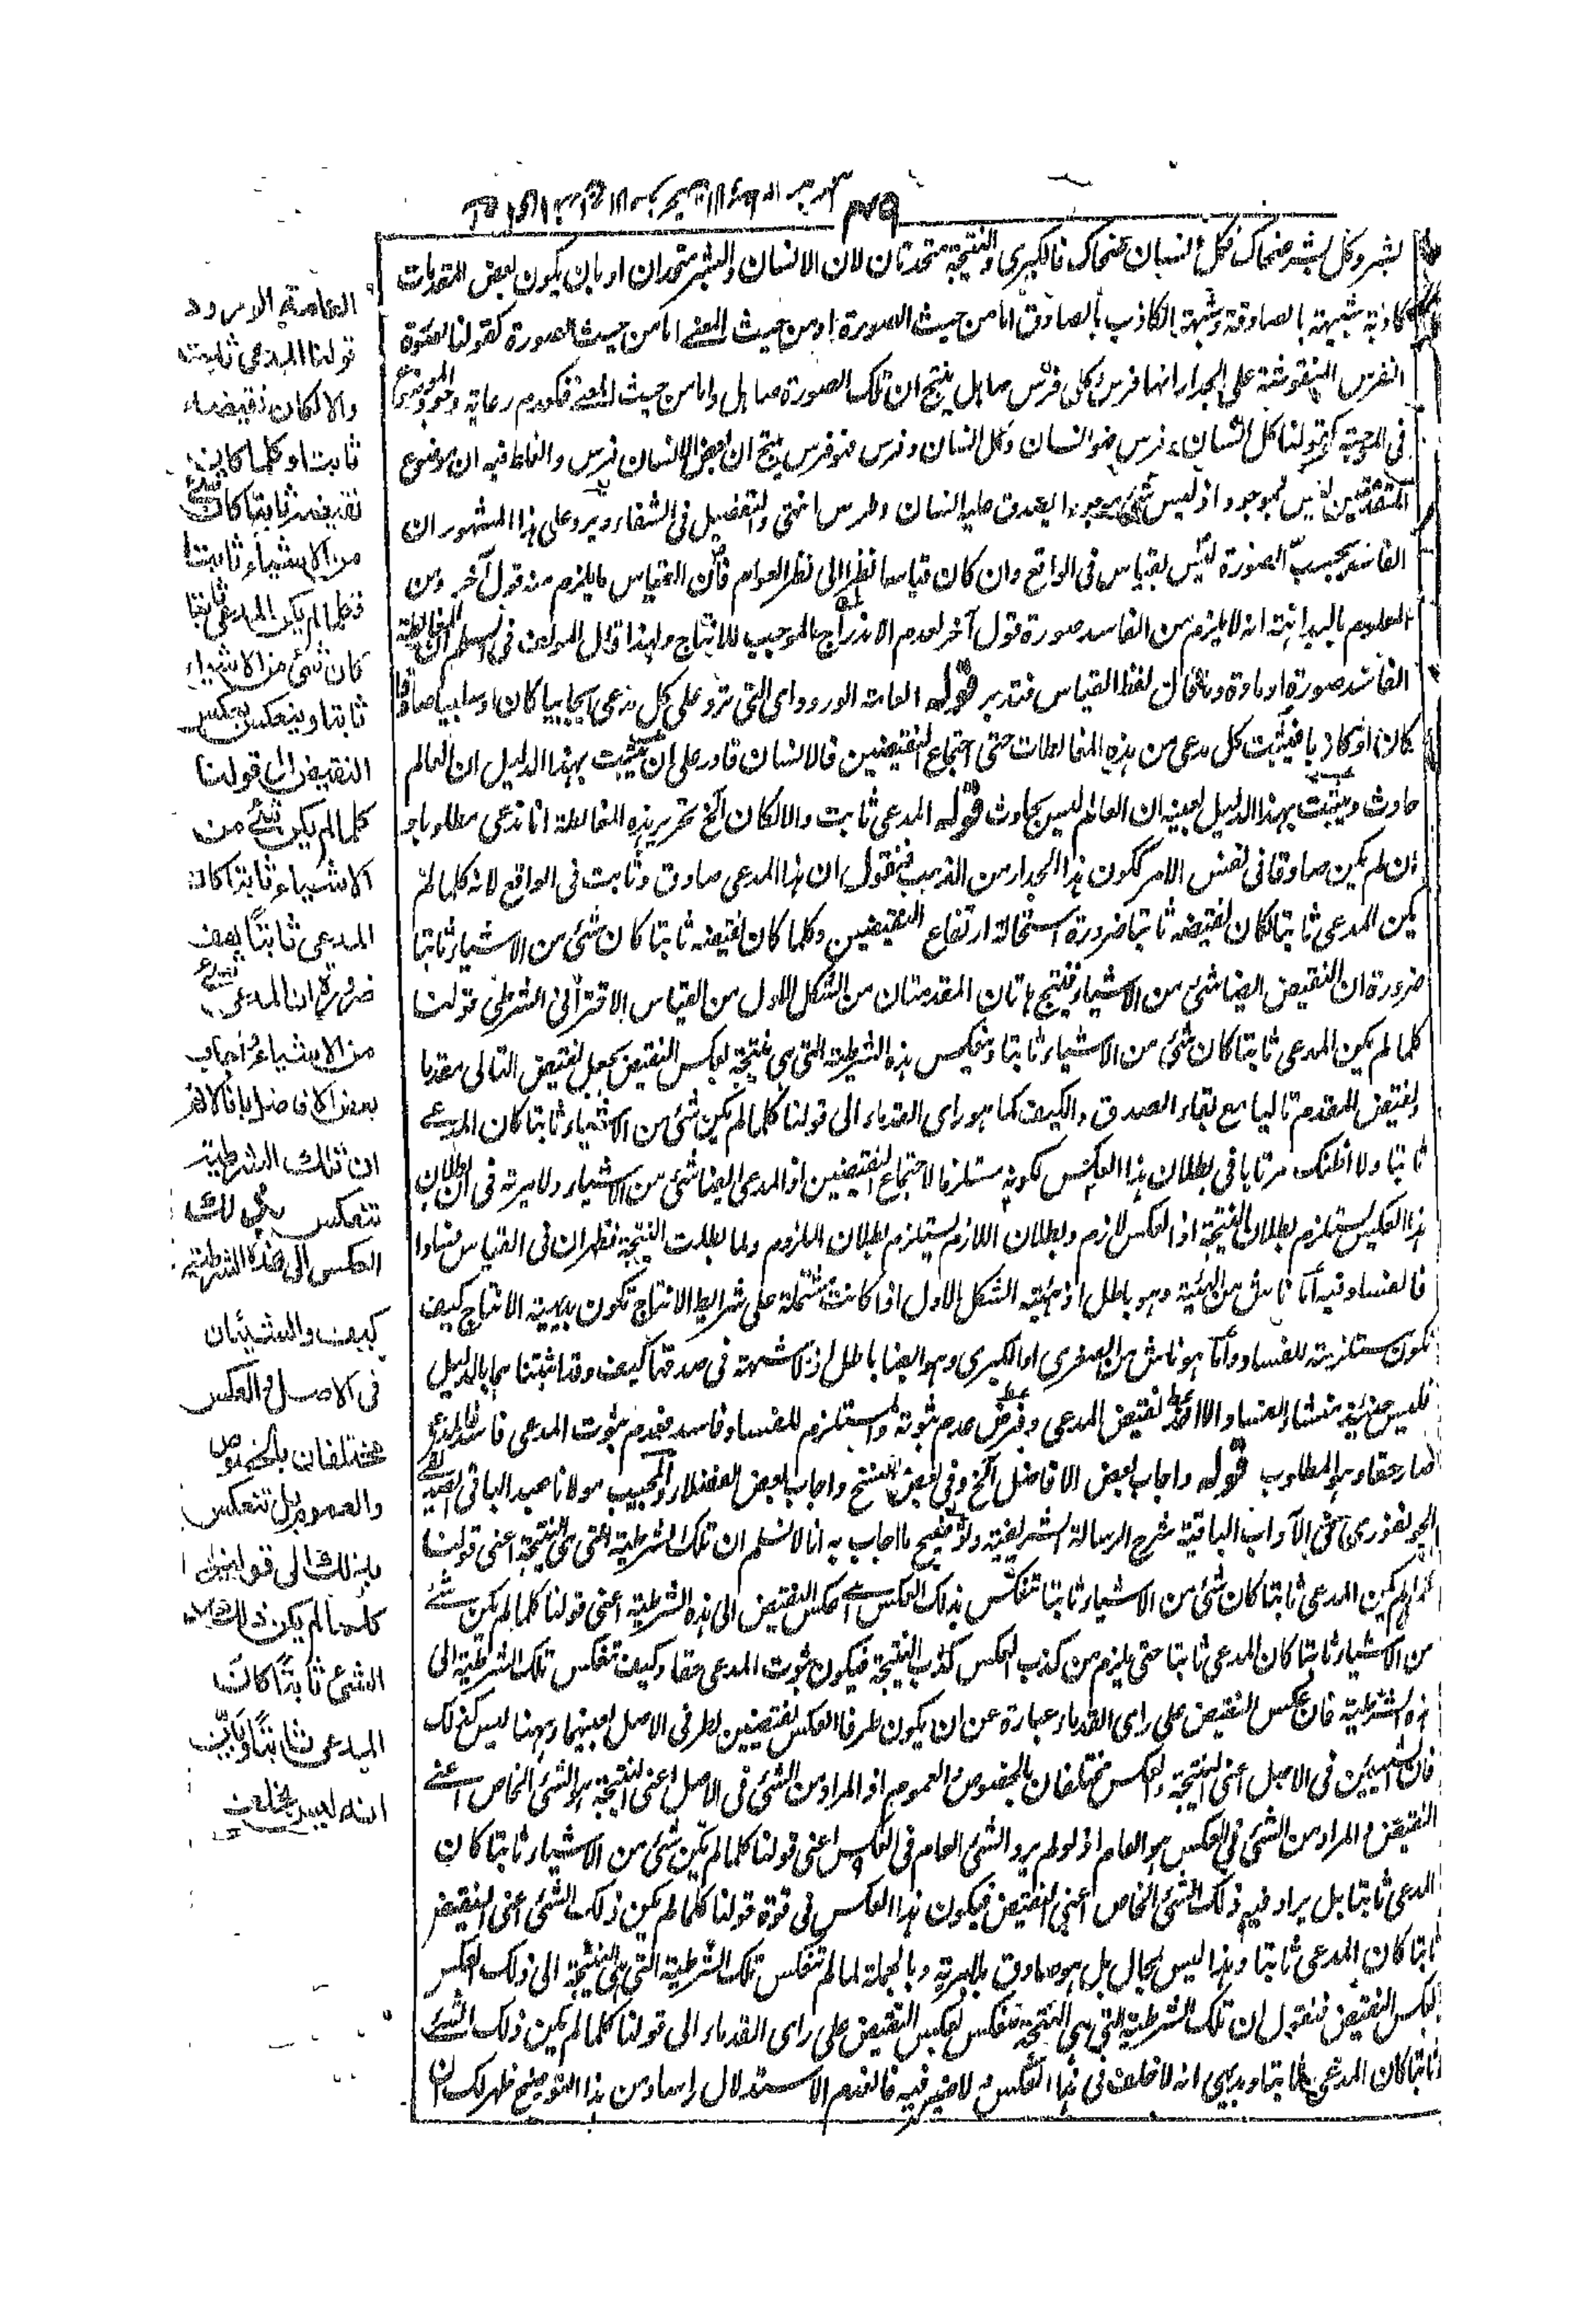 بشر وكل بشر ضحاك فكل انسان ضحاك فالكبرى والنتيجة متحدتان لان الانسان والبشر متحدان او بان يكون بعض المقدمات
كاذبة شبيهة بالصادقة وشبهة الكاذب بالصادق اما من حيث الصورة او من حيث المعنى اما من حيث الصورة كقولنا لصورة
الفرس المنقوشة على الجدار انها فرس وكل فرس صاهل ينتج ان تلك الصورة صاهل واما من حيث المعنى فكعدم رعاية وجود الموضوع
فى الموجبة كقولنا كل انسان وفرس فهو انسان وكل انسان وفرس فهو فرس ينتج ان بعض الانسان فرس والغلط فيه ان موضوع
المقدمتين ليس بموجود اذ ليس شئ موجود يصدق عليه انسان وفرس انتهى والتفصيل فى الشفاء ويرد على هذا المشهور ان
الفاسد بحسب الصورة ليس بقياس فى الواقع وان كان قياسا نظرا الى نظر العوام فان القياس ما يلزم منه قول آخر ومن
المعلوم بالبداهة انه لا يلزم من الفاسد صورة قول آخر لعدم الاندراج الموجب للانتاج ولهذا قال المولوى فى السلم المغالطة
الفاسد صورة او مادة وما قال لفظ القياس فتدبر قوله العامة الورود اى التى ترد على كل مدعى ايجابيا كان او سلبيا صادقا
كان او كاذبا فيثبت كل مدعى من هذه المغالطات حتى اجتماع النقيضين فالانسان قادر على ان يثبت بهذا الدليل ان العالم
حادث ويثبت بهذا الدليل بعينه ان العالم ليس بحادث قوله المدعى ثابت والا لكان آلخ تحرير هذه المغالطة انا ندعى مطلوبا و
ان لم يكن صادقا فى نفس الامر ككون هذا الجدار من الذهب فنقول ان هذا المدعى صادق وثابت فى الواقع لانه كلما لم
يكن المدعى ثابتا لكان نقيضه ثابتا ضرورة استحالة ارتفاع النقيضين وكلما كان نقيضه ثابتا كان شئ من الاشياء ثابتا
ضرورة ان النقيض ايضا شئ من الاشياء فينتج هاتان المقدمتان من الشكل الاول من القياس الاقترانى الشرطى قولنا
كلما لم يكن المدعى ثابتا كان شئ من الاشياء ثابتا وتنعكس هذه الشرطية التى هى نتيجة بعكس النقيض بجعل نقيض التالى مقدما
ونقيض المقدم تاليا مع بقاء الصدق والكيف كما هو راى القدماء الى قولنا كلما لم يكن شئ من الاشياء ثابتا كان المدعى
ثابتا ولا اظنك مرتابا فى بطلان هذا العكس لكونه مستلزما لاجتماع النقيضين اذ المدعى ايضا شئ من الاشياء ولا مرية فى ان بطلان
هذا العكس يستلزم بطلان النتيجة اذ العكس لازم وبطلان اللازم يستلزم بطلان الملزوم ولما بطلت النتيجة فظهر ان فى القياس فسادا
فالفساد فيه اما ناش من الهيئة وهو باطل اذ هيئة الشكل الاول اذا كانت مشتملة على شرائط الانتاج تكون بديهية الانتاج كيف
تكون مستلزمة للفساد واما هو ناش من الصغرى او الكبرى وهو ايضا باطل اذ لا شبهة فى صدقهما كيف وقد اثبتناهما بالدليل
فليس حينئذ منشاء الفساد الا اخذ نقيض المدعى وفرض عدم ثبوته والمستلزم للفساد فاسد فعدم ثبوت المدعى فاسد فالمدعى
صار حقا وهو المطلوب قوله واجاب بعض الافاضل آلخ وفى بعض النسخ واجاب بعض الفضلاء والمجيب مولانا عبد الباقى الصديقى
الجونفورى فى الآداب الباقية شرح الرسالة الشريفية وتوضيح ما اجاب به انا لا نسلم ان تلك الشرطية التى هى النتيجة اعنى قولنا
كلما لم يكن المدعى ثابتا كان شئ من الاشياء ثابتا تنعكس بذلك العكس اى عكس النقيض الى هذه الشرطية اعنى قولنا كلما لم يكن شئ
من الاشياء ثابتا كان المدعى ثابتا حتى يلزم من كذب العكس كذب النتيجة فيكون ثبوت المدعى حقا وكيف تنعكس تلك الشرطية الى
هذه الشرطية فان عكس النقيض على راى القدماء عبارة عن ان يكون طرفا العكس نقيضين لطرفى الاصل بعينهما وههنا ليس كذلك
فان الشيئين فى الاصل اعنى النتيجة والعكس مختلفان بالخصوص والعموم اذ المراد من الشئ فى الاصل اعنى النتيجة هو الشئ الخاص اعنى
النقيض والمراد من الشئ فى العكس هو العام اذ لو لم يرد الشئ العام فى العكس اعنى قولنا كلما لم يكن شئ من الاشياء ثابتا كان
المدعى ثابتا بل يراد فيه ذلك الشئ الخاص اعنى النقيض فيكون هذا العكس فى قوة قولنا كلما لم يكن ذلك الشئ اعنى النقيض
ثابتا كان المدعى ثابتا وهذا ليس بمحال بل هو صادق بالمرية وبالجملة لما لم تنعكس تلك الشرطية التى هى النتيجة الى ذلك العكس
بعكس النقيض فنقول ان تلك الشرطية التى هى النتيجة تنعكس بعكس النقيض على راى القدماء الى قولنا كلما لم يكن ذلك الشئ
ثابتا كان المدعى ثابتا وبديهى انه لا خلف فى هذا العكس ولا ضير فيه فانعدم الاستدلال راسا ومن هذا التوضيح ظهر لك ان
العامة الورود
قولنا المدعى ثابت
والا لكان نقيضه
ثابتا وكلما كان
نقيضه ثابتا كان شئ
من الاشياء ثابتا
فكلما لم يكن المدعى ثابتا
كان شئ من الاشياء
ثابتا وينعكس بعكس
النقيض الى قولنا
كلما لم يكن شئ من
الاشياء ثابتا كان
المدعى ثابتا هف
ضرورة ان المدعى شئ
من الاشياء واجاب
بعض الافاضل بانا لا نم
ان تلك الشرطية
تنعكس بذلك
العكس الى هذه الشرطية
كيف والشيئان
فى الاصل والعكس
مختلفان بالخصوص
والعموم بل تنعكس
بذلك الى قولنا
كلما لم يكن ذلك
الشئ ثابتا كان
المدعى ثابتا وبين
انه ليس بخلف